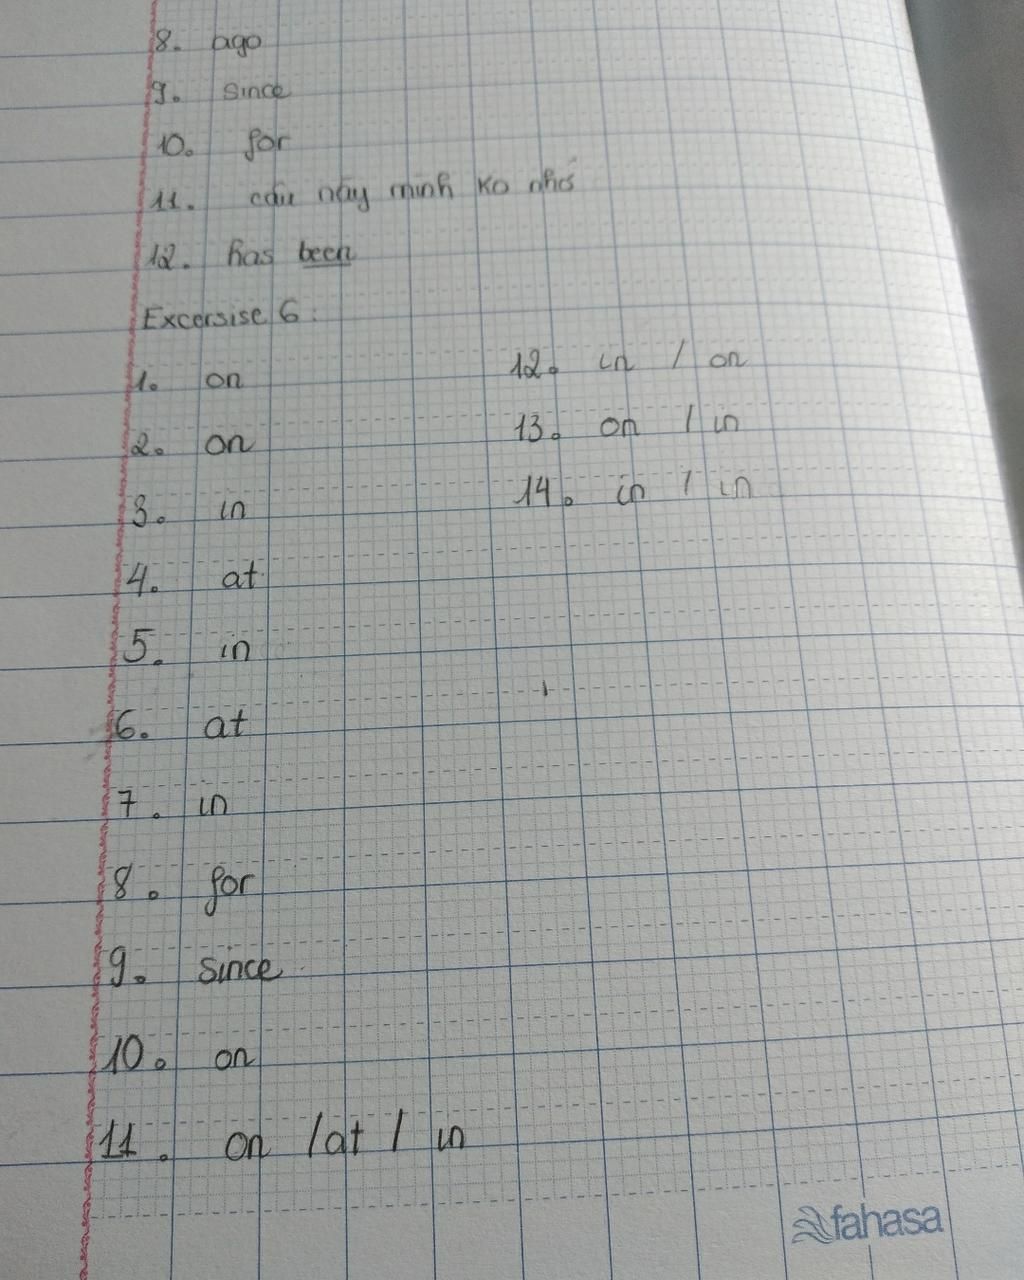 8. ago
9. since
10. for
11. câu này mình ko nhớ
12. has been
Excersise 6:
1. on
2. on
3. in
4. at
5. in
6. at
7. in
8. for
9. since
10. on
11. on / at / in
12. in / on
13. on / in
14. in / in
fahasa